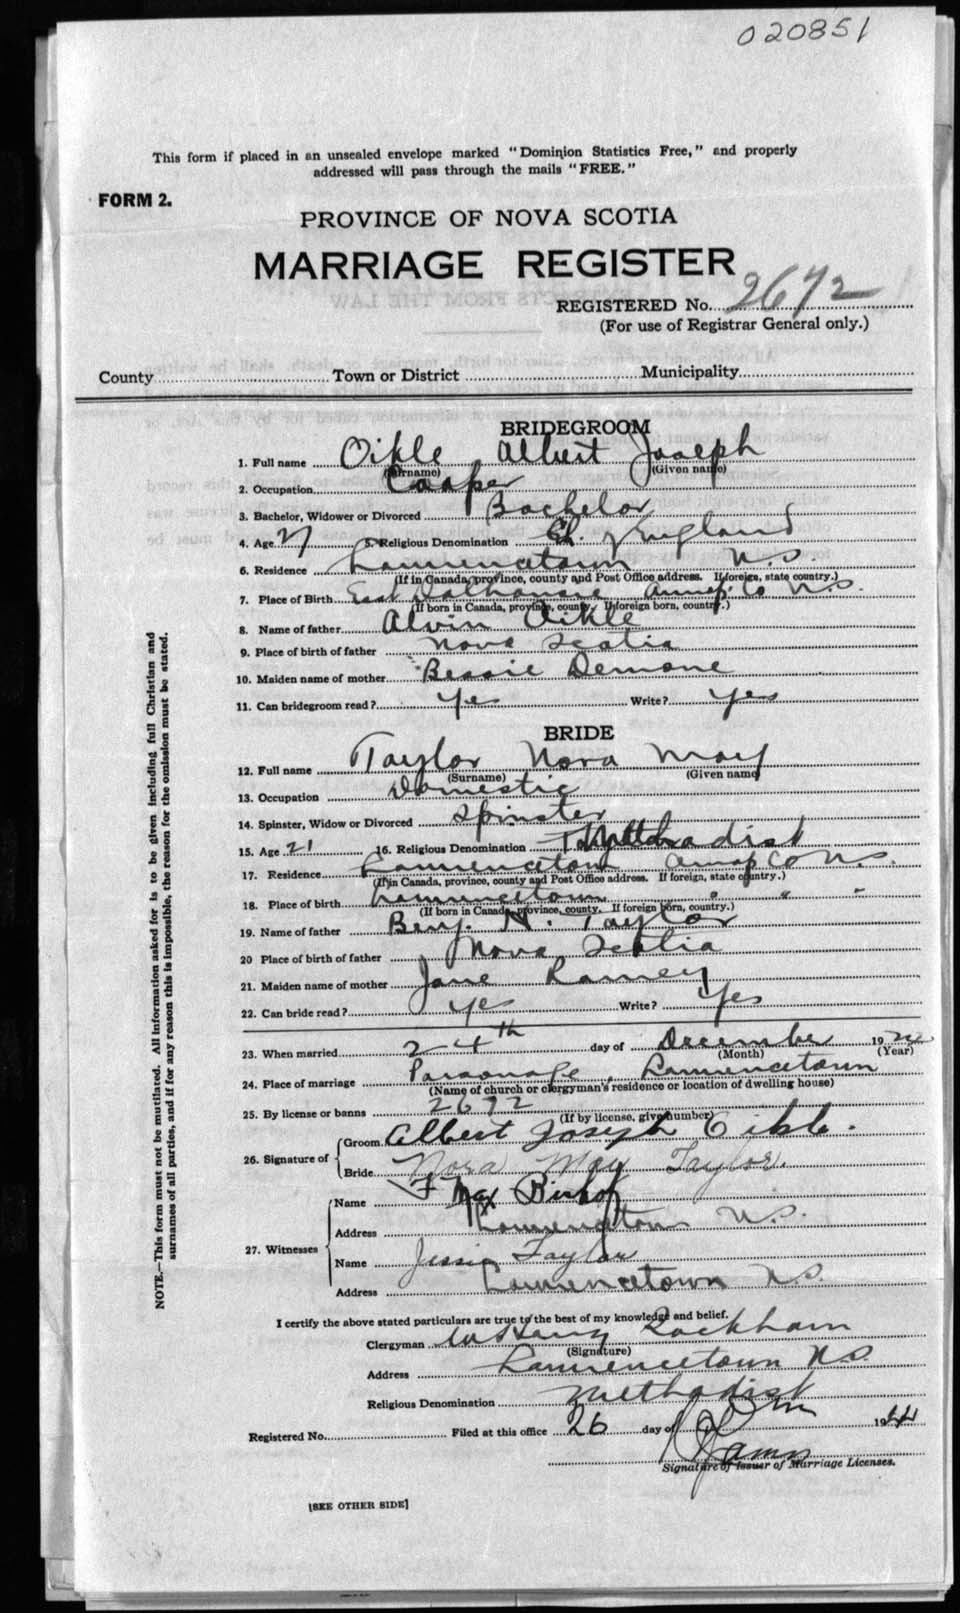 020851
This form if placed in an unsealed envelope marked "Dominion Statistics Free," and properly
addressed will pass through the mails "FREE."
FORM 2.
PROVINCE OF NOVA SCOTIA
MARRIAGE REGISTER
REGISTERED No. 2672
(For use of Registrar General only.)
County Town or District Municipality
BRIDEGROOM
1. Full name Oikle Albert Joseph
(Surname) (Given name)
2. Occupation Cooper
3. Bachelor, Widower or Divorced Bachelor
4. Age 27 5. Religious Denomination Ch. England
6. Residence Lawrencetown N.S.
(If in Canada, province, county and Post Office address. If foreign, state country.)
7. Place of Birth East Dalhousie Annap. Co N.S.
(If born in Canada, province, county. If foreign born, country.)
8. Name of father Alvin Oikle
9. Place of birth of father Nova Scotia
10. Maiden name of mother Bessie Demone
11. Can bridegroom read? yes Write? yes
BRIDE
12. Full name Taylor Nora May
(Surname) (Given name)
13. Occupation Domestic
14. Spinster, Widow or Divorced Spinster
15. Age 21 16. Religious Denomination Methodist
17. Residence Lawrencetown Annap Co N.S.
(If in Canada, province, county and Post Office address. If foreign, state country.)
18. Place of birth Lawrencetown " " "
(If born in Canada, province, county. If foreign born, country.)
19. Name of father Benj. N. Taylor
20 Place of birth of father Nova Scotia
21. Maiden name of mother Jane Ramey
22. Can bride read? yes Write? yes
23. When married 24th day of December 1924
(Month) (Year)
24. Place of marriage Parsonage, Lawrencetown
(Name of church or clergyman's residence or location of dwelling house)
25. By license or banns 2672
(If by license, give number)
26. Signature of Groom Albert Joseph Oikle.
Bride Nora May Taylor.
27. Witnesses Name F Max Bishop
Address Lawrencetown N.S.
Name Jessie Taylor
Address Lawrencetown N.S.
I certify the above stated particulars are true to the best of my knowledge and belief.
Clergyman Rackham
(Signature)
Address Lawrencetown N.S.
Religious Denomination Methodist
Registered No. Filed at this office 26 day of 19
Signature of Issuer of Marriage Licenses.
[SEE OTHER SIDE]
NOTE.—This form must not be mutilated. All information asked for is to be given including full Christian and
surnames of all parties, and if for any reason this is impossible, the reason for the omission must be stated.